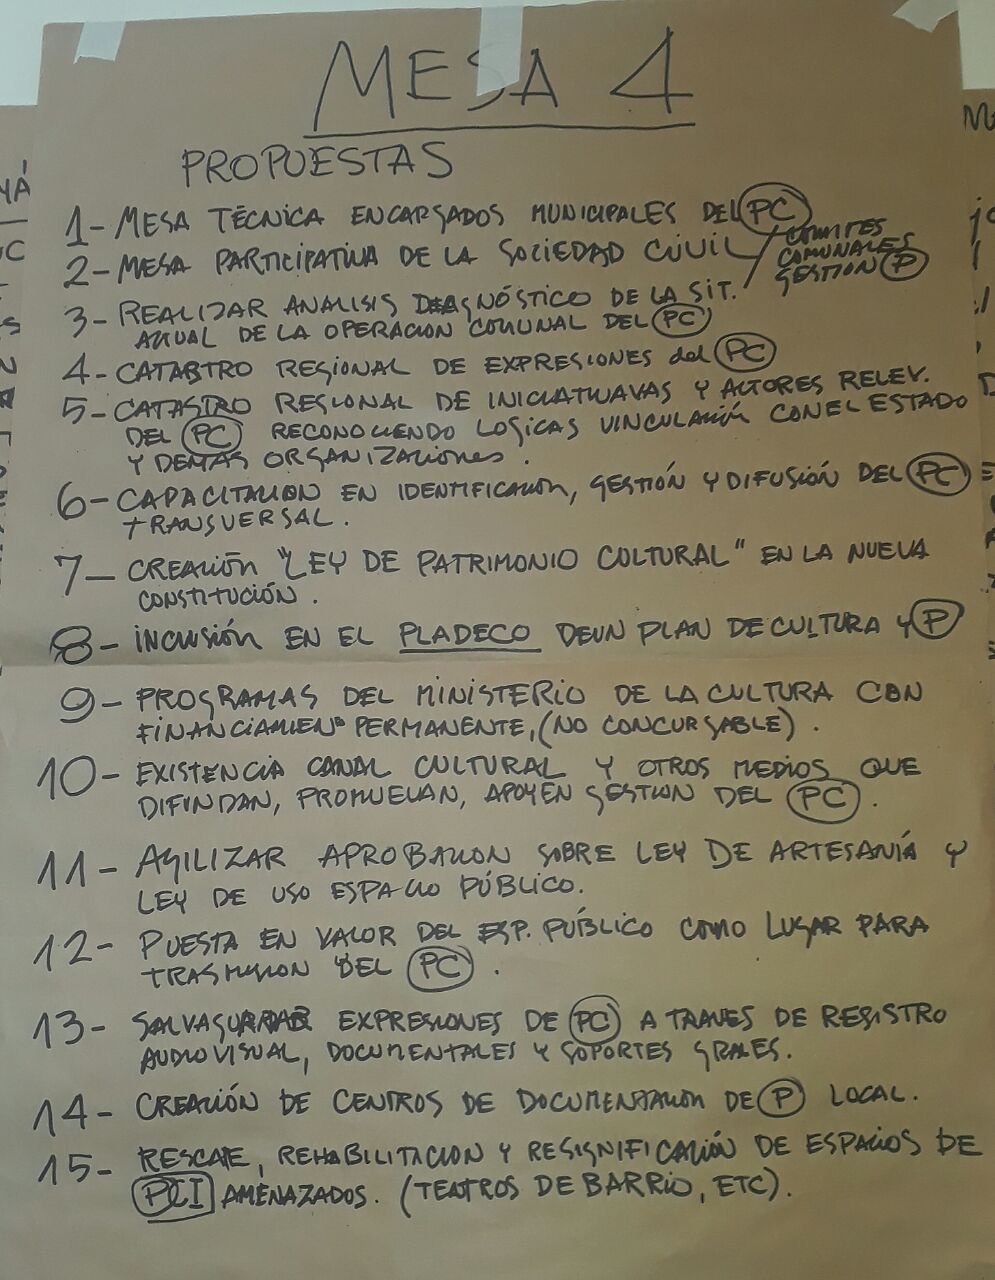 MESA 4
PROPUESTAS
1- MESA TÉCNICA ENCARGADOS MUNICIPALES DEL PC
2- MESA PARTICIPATIVA DE LA SOCIEDAD CIVIL / COMITES
COMUNALES
GESTIÓN P
3- REALIZAR ANALISIS DIAGNÓSTICO DE LA SIT.
ACTUAL DE LA OPERACION COMUNAL DEL PC
4- CATASTRO REGIONAL DE EXPRESIONES del PC
5- CATASTRO REGIONAL DE INICIATIVAVAS Y ACTORES RELEV.
DEL PC RECONOCIENDO LOGICAS VINCULACIÓN CON EL ESTADO
Y DEMÁS ORGANIZACIONES.
6- CAPACITACION EN IDENTIFICACION, GESTIÓN Y DIFUSIÓN DEL PC
TRANSVERSAL.
7- CREACIÓN "LEY DE PATRIMONIO CULTURAL" EN LA NUEVA
CONSTITUCIÓN.
8- INCLUSIÓN EN EL PLADECO DE UN PLAN DE CULTURA Y P
9- PROGRAMAS DEL MINISTERIO DE LA CULTURA CON
FINANCIAMIENTO PERMANENTE, (NO CONCURSABLE).
10- EXISTENCIA CANAL CULTURAL Y OTROS MEDIOS QUE
DIFUNDAN, PROMUEVAN, APOYEN GESTION DEL PC.
11- AGILIZAR APROBACION SOBRE LEY DE ARTESANÍA Y
LEY DE USO ESPACIO PÚBLICO.
12- PUESTA EN VALOR DEL ESP. PÚBLICO COMO LUGAR PARA
TRASMISION DEL PC.
13- SALVAGUARDAR EXPRESIONES DE PC A TRAVES DE REGISTRO
AUDIOVISUAL, DOCUMENTALES Y SOPORTES GRALES.
14- CREACIÓN DE CENTROS DE DOCUMENTACION DE P LOCAL.
15- RESCATE, REHABILITACION Y RESIGNIFICACIÓN DE ESPACIOS DE
PCI AMENAZADOS. (TEATROS DE BARRIO, ETC).